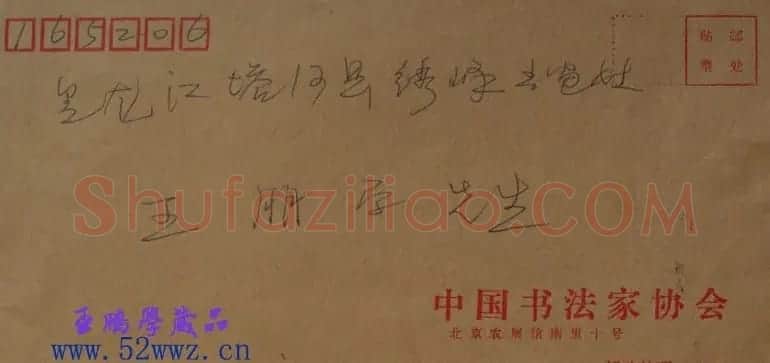 165206
贴邮
票处
黑龙江塔河县绣峰
王鹏学先生
Shufaziliao.COM
中国书法家协会
北京农展馆南里十号
王鹏學藏品
www.52wwz.cn